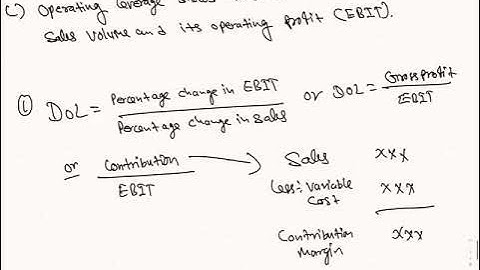 (c) Operating leverage
Sales volume and its operating profit (EBIT).
(i) DOL = Percentage change in EBIT / Percentage change in Sales or DOL = Gross Profit / EBIT
or Contribution / EBIT → Sales xxx
Less: Variable Cost xxx
Contribution Margin xxx